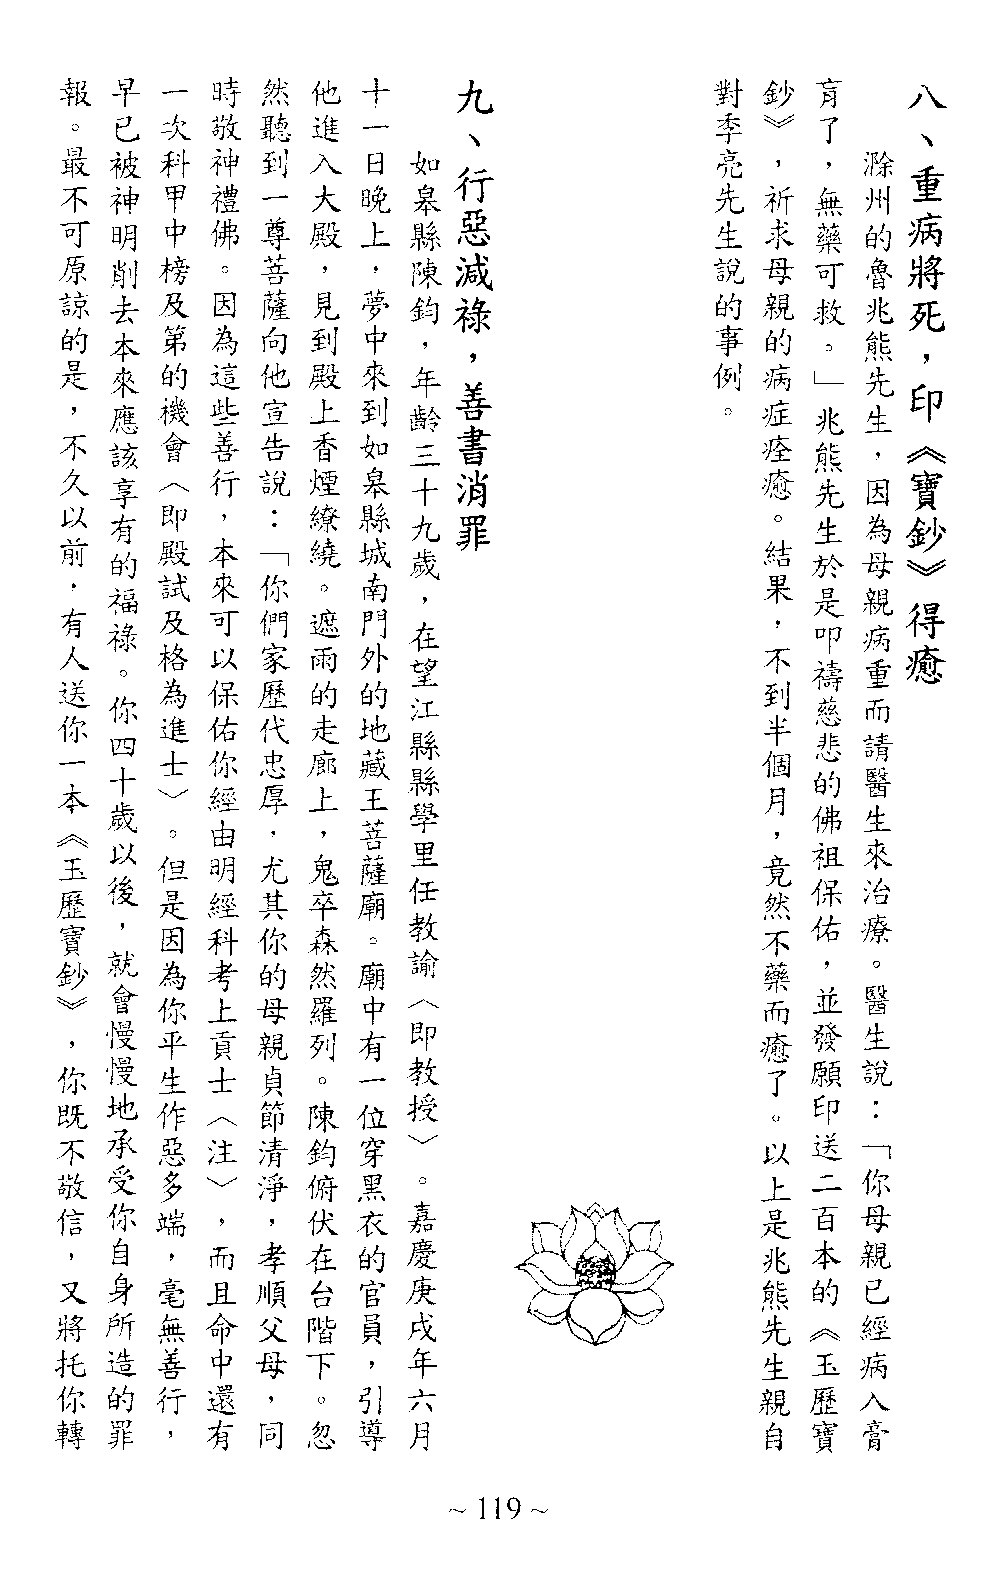 八、重病將死，印《寶鈔》得癒
滁州的魯兆熊先生，因為母親病重而請醫生來治療。醫生說：「你母親已經病入膏
肓了，無藥可救。」兆熊先生於是叩禱慈悲的佛祖保佑，並發願印送二百本的《玉歷寶
鈔》，祈求母親的病症痊癒。結果，不到半個月，竟然不藥而癒了。以上是兆熊先生親自
對季亮先生說的事例。
九、行惡減祿，善書消罪
如皋縣陳鈞，年齡三十九歲，在望江縣縣學里任教諭（即教授）。嘉慶庚戌年六月
十一日晚上，夢中來到如皋縣城南門外的地藏王菩薩廟。廟中有一位穿黑衣的官員，引導
他進入大殿，見到殿上香煙繚繞。遮雨的走廊上，鬼卒森然羅列。陳鈞俯伏在台階下。忽
然聽到一尊菩薩向他宣告說：「你們家歷代忠厚，尤其你的母親貞節清淨，孝順父母，同
時敬神禮佛。因為這些善行，本來可以保佑你經由明經科考上貢士（注），而且命中還有
一次科甲中榜及第的機會（即殿試及格為進士）。但是因為你平生作惡多端，毫無善行，
早已被神明削去本來應該享有的福祿。你四十歲以後，就會慢慢地承受你自身所造的罪
報。最不可原諒的是，不久以前，有人送你一本《玉歷寶鈔》，你既不敬信，又將托你轉
~ 119 ~